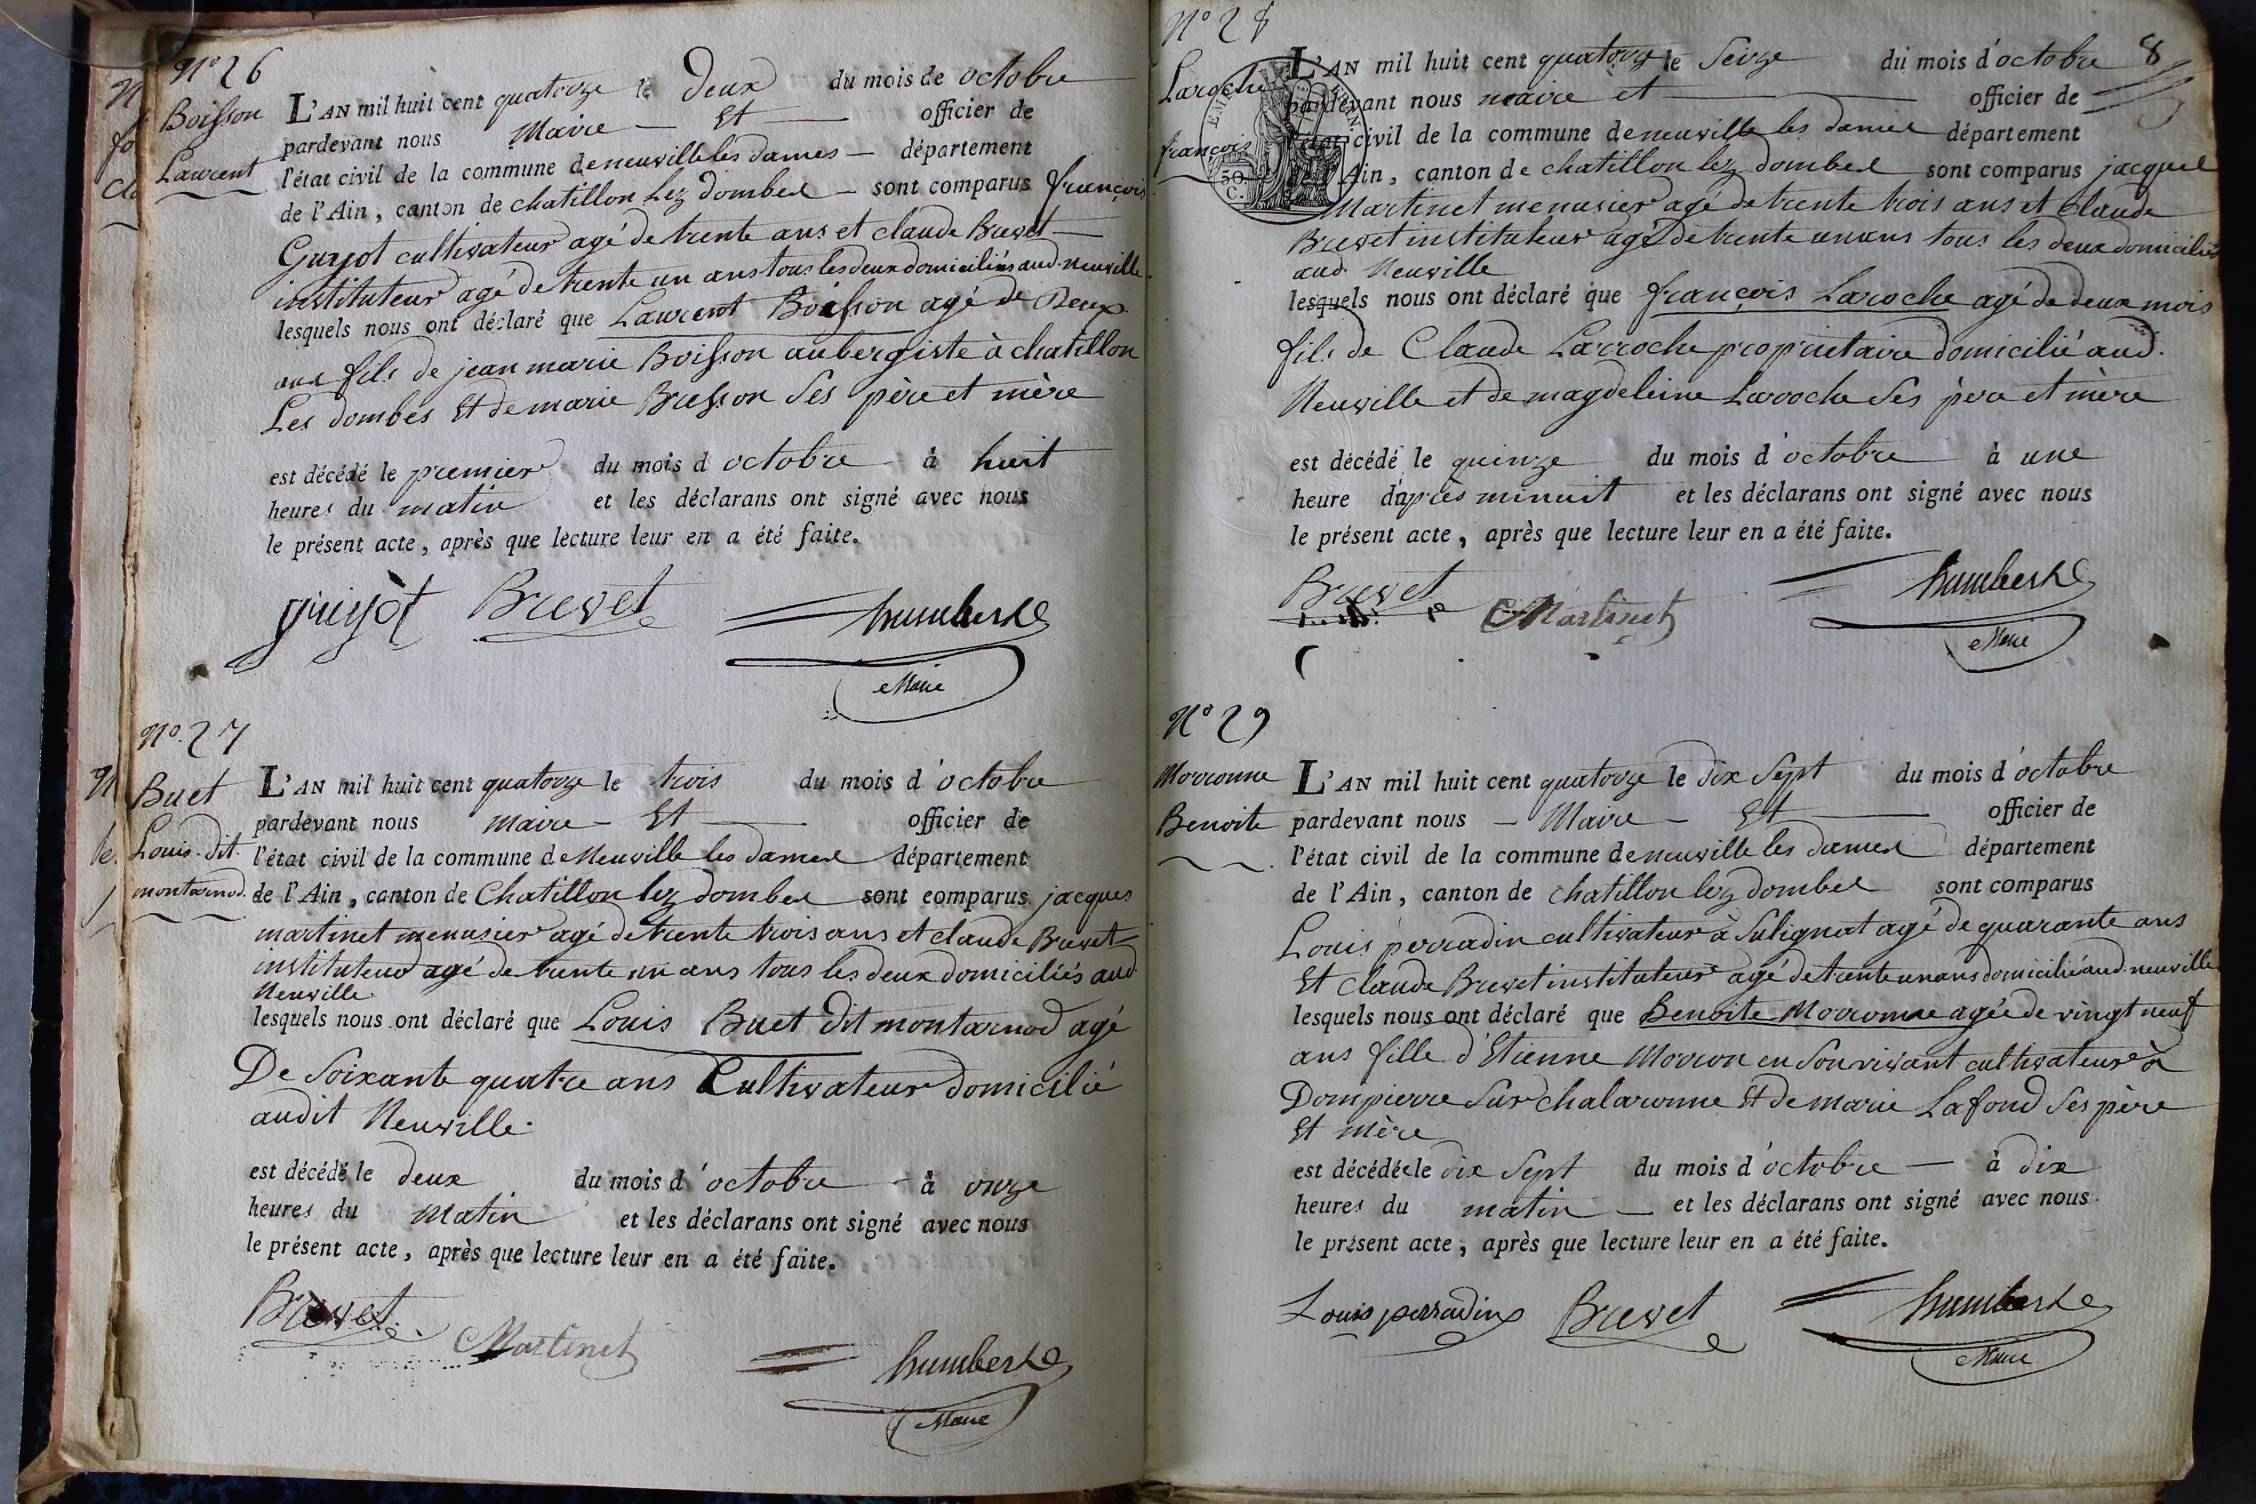 N° 26
Boisson
Laurent
L'AN mil huit cent quatorze le Deux du mois de octobre
pardevant nous Maire Et officier de
l'état civil de la commune de neuville les dames département
de l'Ain, canton de chatillon lez dombes sont comparus françois
Guyot cultivateur agé de trente ans et claude Brevet
instituteur agé de trente un ans tous les deux domiciliés aud. neuville
lesquels nous ont déclaré que Laurent Boisson agé de Deux
ans fils de jean marie Boisson aubergiste à chatillon
Les dombes Et de marie Bresson Ses père et mère
est décédé le premier du mois d octobre à huit
heures du matin et les déclarans ont signé avec nous
le présent acte, après que lecture leur en a été faite.
guyot Brevet humbert
Maire
N° 27
Buet
Louis dit
montarnod.
L'AN mil huit cent quatorze le trois du mois d'octobre
pardevant nous maire Et officier de
l'état civil de la commune de Neuville les dames département
de l'Ain, canton de Chatillon lez dombes sont comparus jacques
martinet menusier agé de trente trois ans et claude Brevet
instituteur agé de trente un ans tous les deux domiciliés aud.
Neuville.
lesquels nous ont déclaré que Louis Buet dit montarnod agé
De Soixante quatre ans Cultivateur domicilié
audit Neuville.
est décédé le deux du mois d'octobre à onze
heures du Matin et les déclarans ont signé avec nous
le présent acte, après que lecture leur en a été faite.
Brevet
Martinet humbert
Maire
N° 28
8
Laroche
françois
L'AN mil huit cent quatorze le Seize du mois d'octobre
pardevant nous maire et officier de
l'état civil de la commune de neuville les dames département
de l'Ain, canton de chatillon lez dombes sont comparus jacques
50
C.
Martinet menusier agé de trente trois ans et Claude
Brevet instituteur agé de trente un ans tous les deux domiciliés
aud. Neuville
lesquels nous ont déclaré que françois Laroche agé de deux mois
fils de Claude Larroche proprietaire domicilié aud.
Neuville et de magdeleine Laroche Ses père et mère
est décédé le quinze du mois d'octobre à une
heure d'après minuit et les déclarans ont signé avec nous
le présent acte, après que lecture leur en a été faite.
Brevet Martinet humbert
Maire
N° 29
Morronne
Benoite
L'AN mil huit cent quatorze le dix Sept du mois d'octobre
pardevant nous Maire Et officier de
l'état civil de la commune de neuville les dames département
de l'Ain, canton de chatillon lez dombes sont comparus
Louis perradin cultivateur à Sulignat agé de quarante ans
Et claude Brevet instituteur agé de trente un ans domicilié aud. neuville
lesquels nous ont déclaré que Benoite Morronne agée de vingt neuf
ans fille d'Etienne Morron en Son vivant cultivateur à
Dompierre Sur chalaronne Et de marie Lafond Ses père
Et mère
est décédée le dix Sept du mois d'octobre à dix
heures du matin et les déclarans ont signé avec nous
le présent acte, après que lecture leur en a été faite.
Louis perradin Brevet humbert
Maire